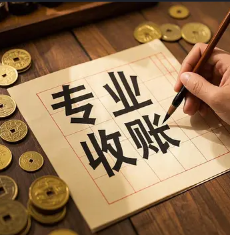 专业
收账